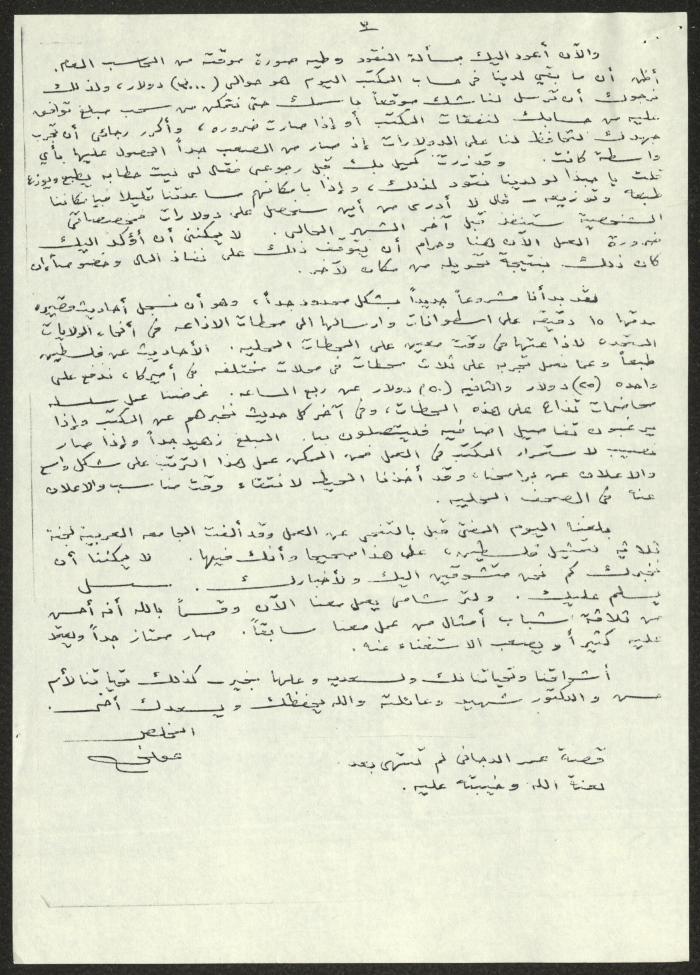 ٣
والآن أعود اليك بمسألة النقود وطيه صورة موقتة من المحاسب العام.
أظن أن ما بقي لدينا في حساب المكتب اليوم هو حوالي (٣٠٠٠) دولار، ولذلك
نرجوك أن ترسل لنا شك موقعاً باسمك حتى نتمكن من سحب مبلغ توافق
عليه من حسابك لنفقات المكتب أو إذا صارت ضروره، وأكرر رجائي أن تجرب
جهدك لتحافظ لنا على الدولارات إذ صار من الصعب جداً الحصول عليها بأي
واسطة كانت. وقد زرت كميل بك قبل رجوعي فقال لي ليت خطابه يطبع ويوزع
قلت يا حبذا لو لدينا نقود لذلك، وإذا بامكانهم مساعدتنا قليلا فبامكاننا
طبعه وتوزيعه - قال لا أدري من أين سنحصل على دولارات فمخصصاتي
الشخصية ستنفذ قبل آخر الشهر الحالي. لا يمكنني أن أؤكد اليك
ضرورة العمل الآن هنا وحرام أن يتوقف ذلك على نفاذ المال وخصوصاً إن
كان ذلك بنتيجة تحويله من مكان لآخر.
لقد بدأنا مشروعاً جديداً بشكل محدود جداً، وهو أن نسجل أحاديث قصيره
مدتها ١٥ دقيقه على اسطوانات وارسالها الى محطات الاذاعه في أنحاء الولايات
المتحده لاذاعتها في وقت معين على المحطات المحليه. الأحاديث عن فلسطين
طبعاً وعما نعمل تجربه على ثلاث محطات في محلات مختلفه في أميركا، ندفع على
واحده (٢٥) دولار والثانيه (٥٠) دولار عن ربع الساعه. غرضنا عمل سلسله
محاضرات تذاع على هذه المحطات، وفي آخر كل حديث نخبرهم عن المكتب وإذا
يرغبون تفاصيل اضافيه فليتصلون بنا. المبلغ زهيد جداً وإذا صار
نصيب لاستمرار المكتب في العمل فمن الممكن عمل هذا الترتب على شكل واسع
والاعلان عن برامجنا، وقد أخذنا الحيط لانتقاء وقت مناسب والاعلان
عنا في الصحف المحليه.
بلغنا اليوم المفتي قبل بالتنحي عن العمل وقد ألفت الجامعه العربية لجنة
ثلاثيه لتمثيل فلسطين، على هذا صحيحا وأنك فيها. لا يمكننا أن
نخبرك كم نحن متشوقين اليك ولأخبارك.
يسلم عليك. ولتر شامي يعمل معنا الآن وقسماً بالله أنه أحسن
من ثلاثة شباب أمثال من عمل معنا سابقاً. صار ممتاز جداً ويعتمد
عليه كثيراً ويصعب الاستغناء عنه.
أشواقنا وتحياتنا لك ولسعديه وعلها بخير. كذلك تحياتنا لأم
حسن والدكتور شهيد وعائلته والله يحفظك ويسعدك أخي.
المخلص
عوني
قصة عمر الدجاني لم تنتهي بعد
لعنة الله وخيبته عليه.